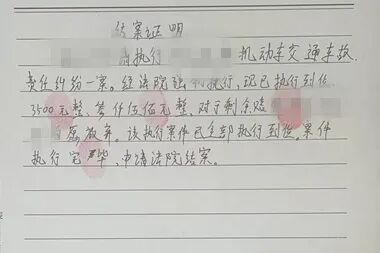 结案证明
执行 机动车交通事故
责任纠纷一案。经法院 执行,现已执行到位
3500元整、叁仟伍佰元整,对于剩余
愿放弃。该执行案件已全部执行到位,案件
执行完毕、申请法院结案。